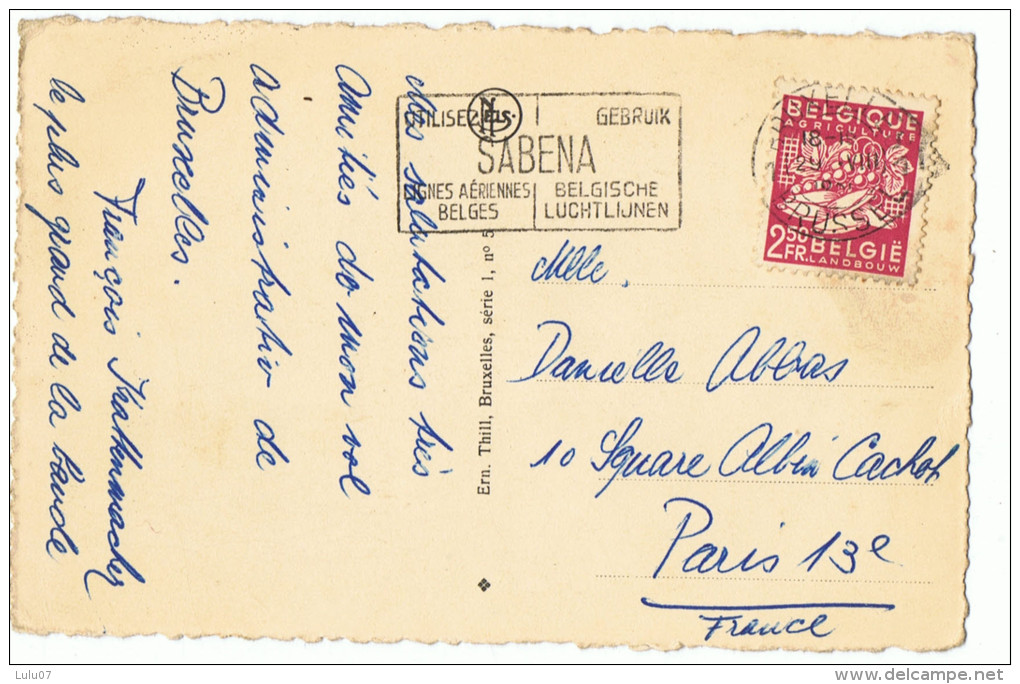 des salutations très
Amitiés de mon vol
administratio de
Bruxelles.
François
le plus grand de la bande
UTILISEZ
GEBRUIK
SABENA
LIGNES AÉRIENNES
BELGES
BELGISCHE
LUCHTLIJNEN
NELS
Ern. Thill, Bruxelles, série 1, nº 5
BELGIQUE
AGRICULTURE
2.50
FR.
BELGIË
LANDBOUW
Melle.
Danielle Abbas
10 Square Albin Cachot
Paris 13e
France
Lulu07
www.delcampe.net